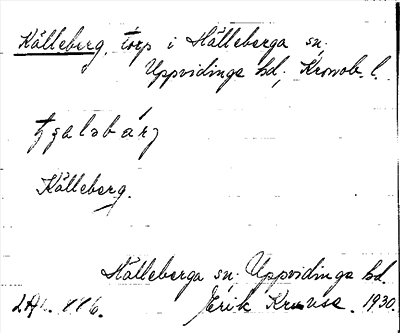 Källeberg, torp i Hälleberga sn.
Uppvidinge hd, Kronob. l.
Källeberg.
Hälleberga sn. Uppvidinge hd.
Erik Kruuse. 1930.